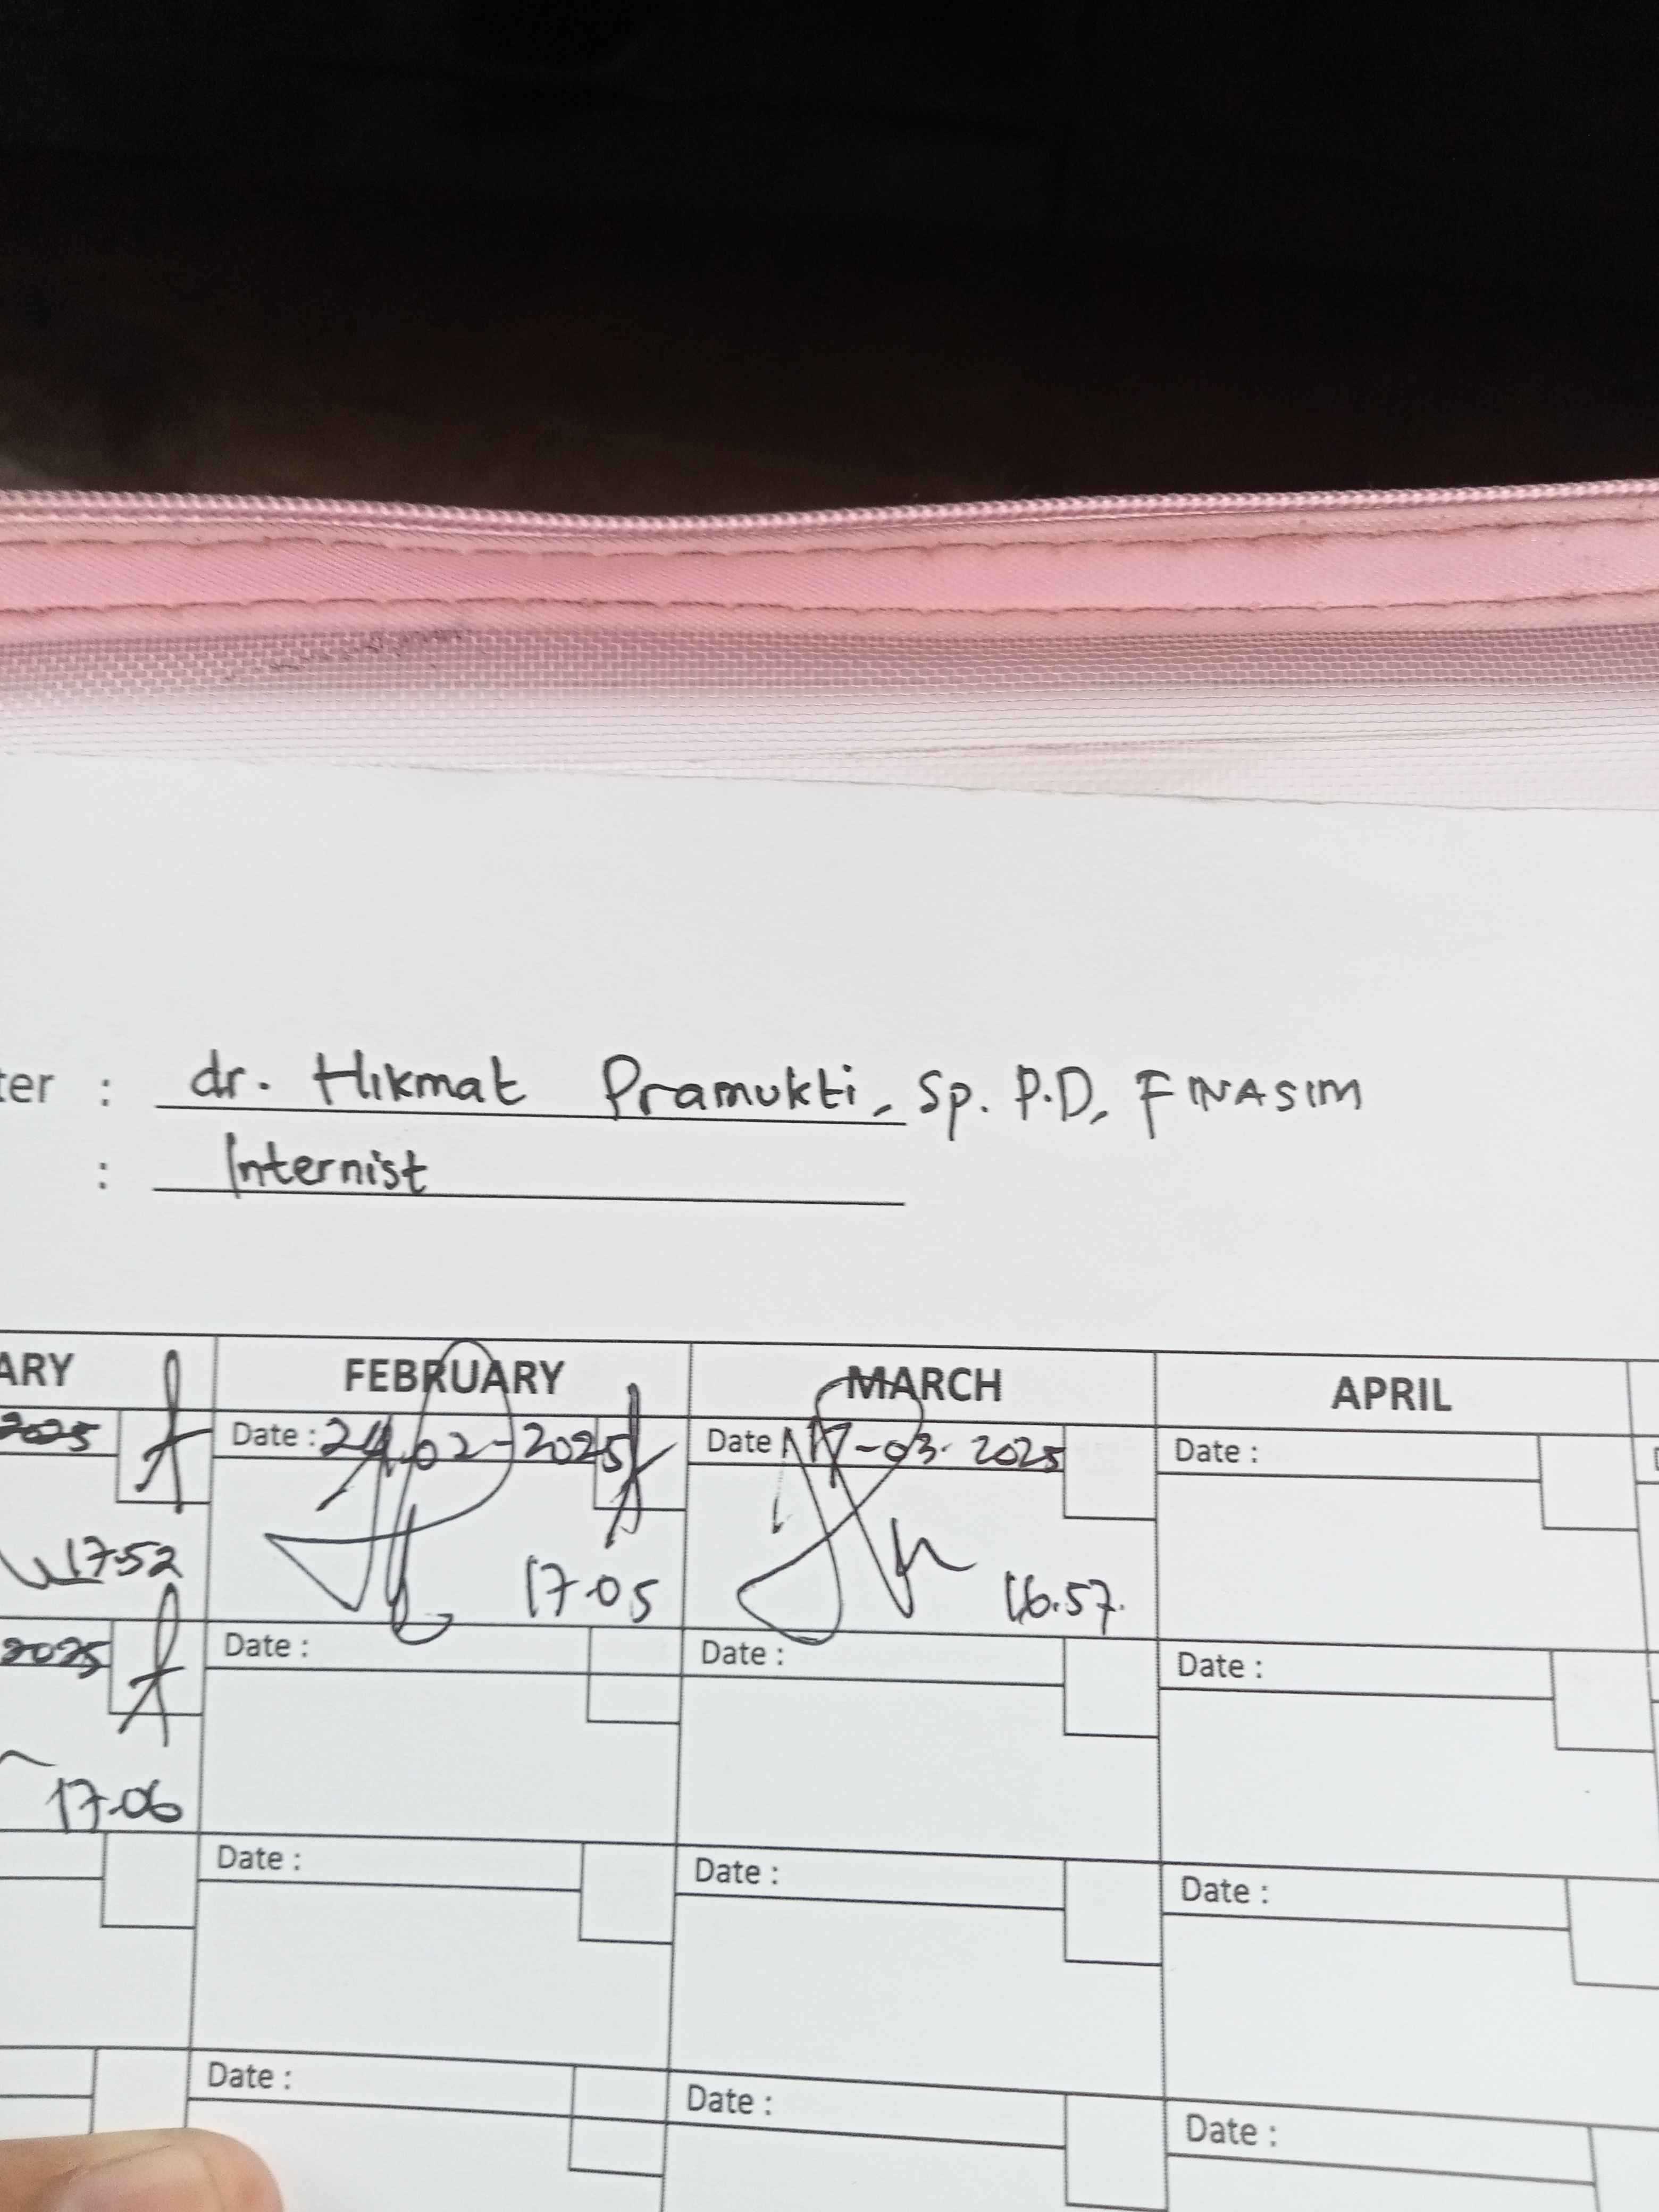 ter : dr. Hikmat Pramukti, Sp. P.D, FINASIM
: Internist
ARY FEBRUARY MARCH APRIL
2025 Date : 24-02-2025 Date 17-03-2025 Date :
17.52 17.05 16.57.
2025 Date : Date : Date :
17.06
Date : Date : Date :
Date : Date : Date :